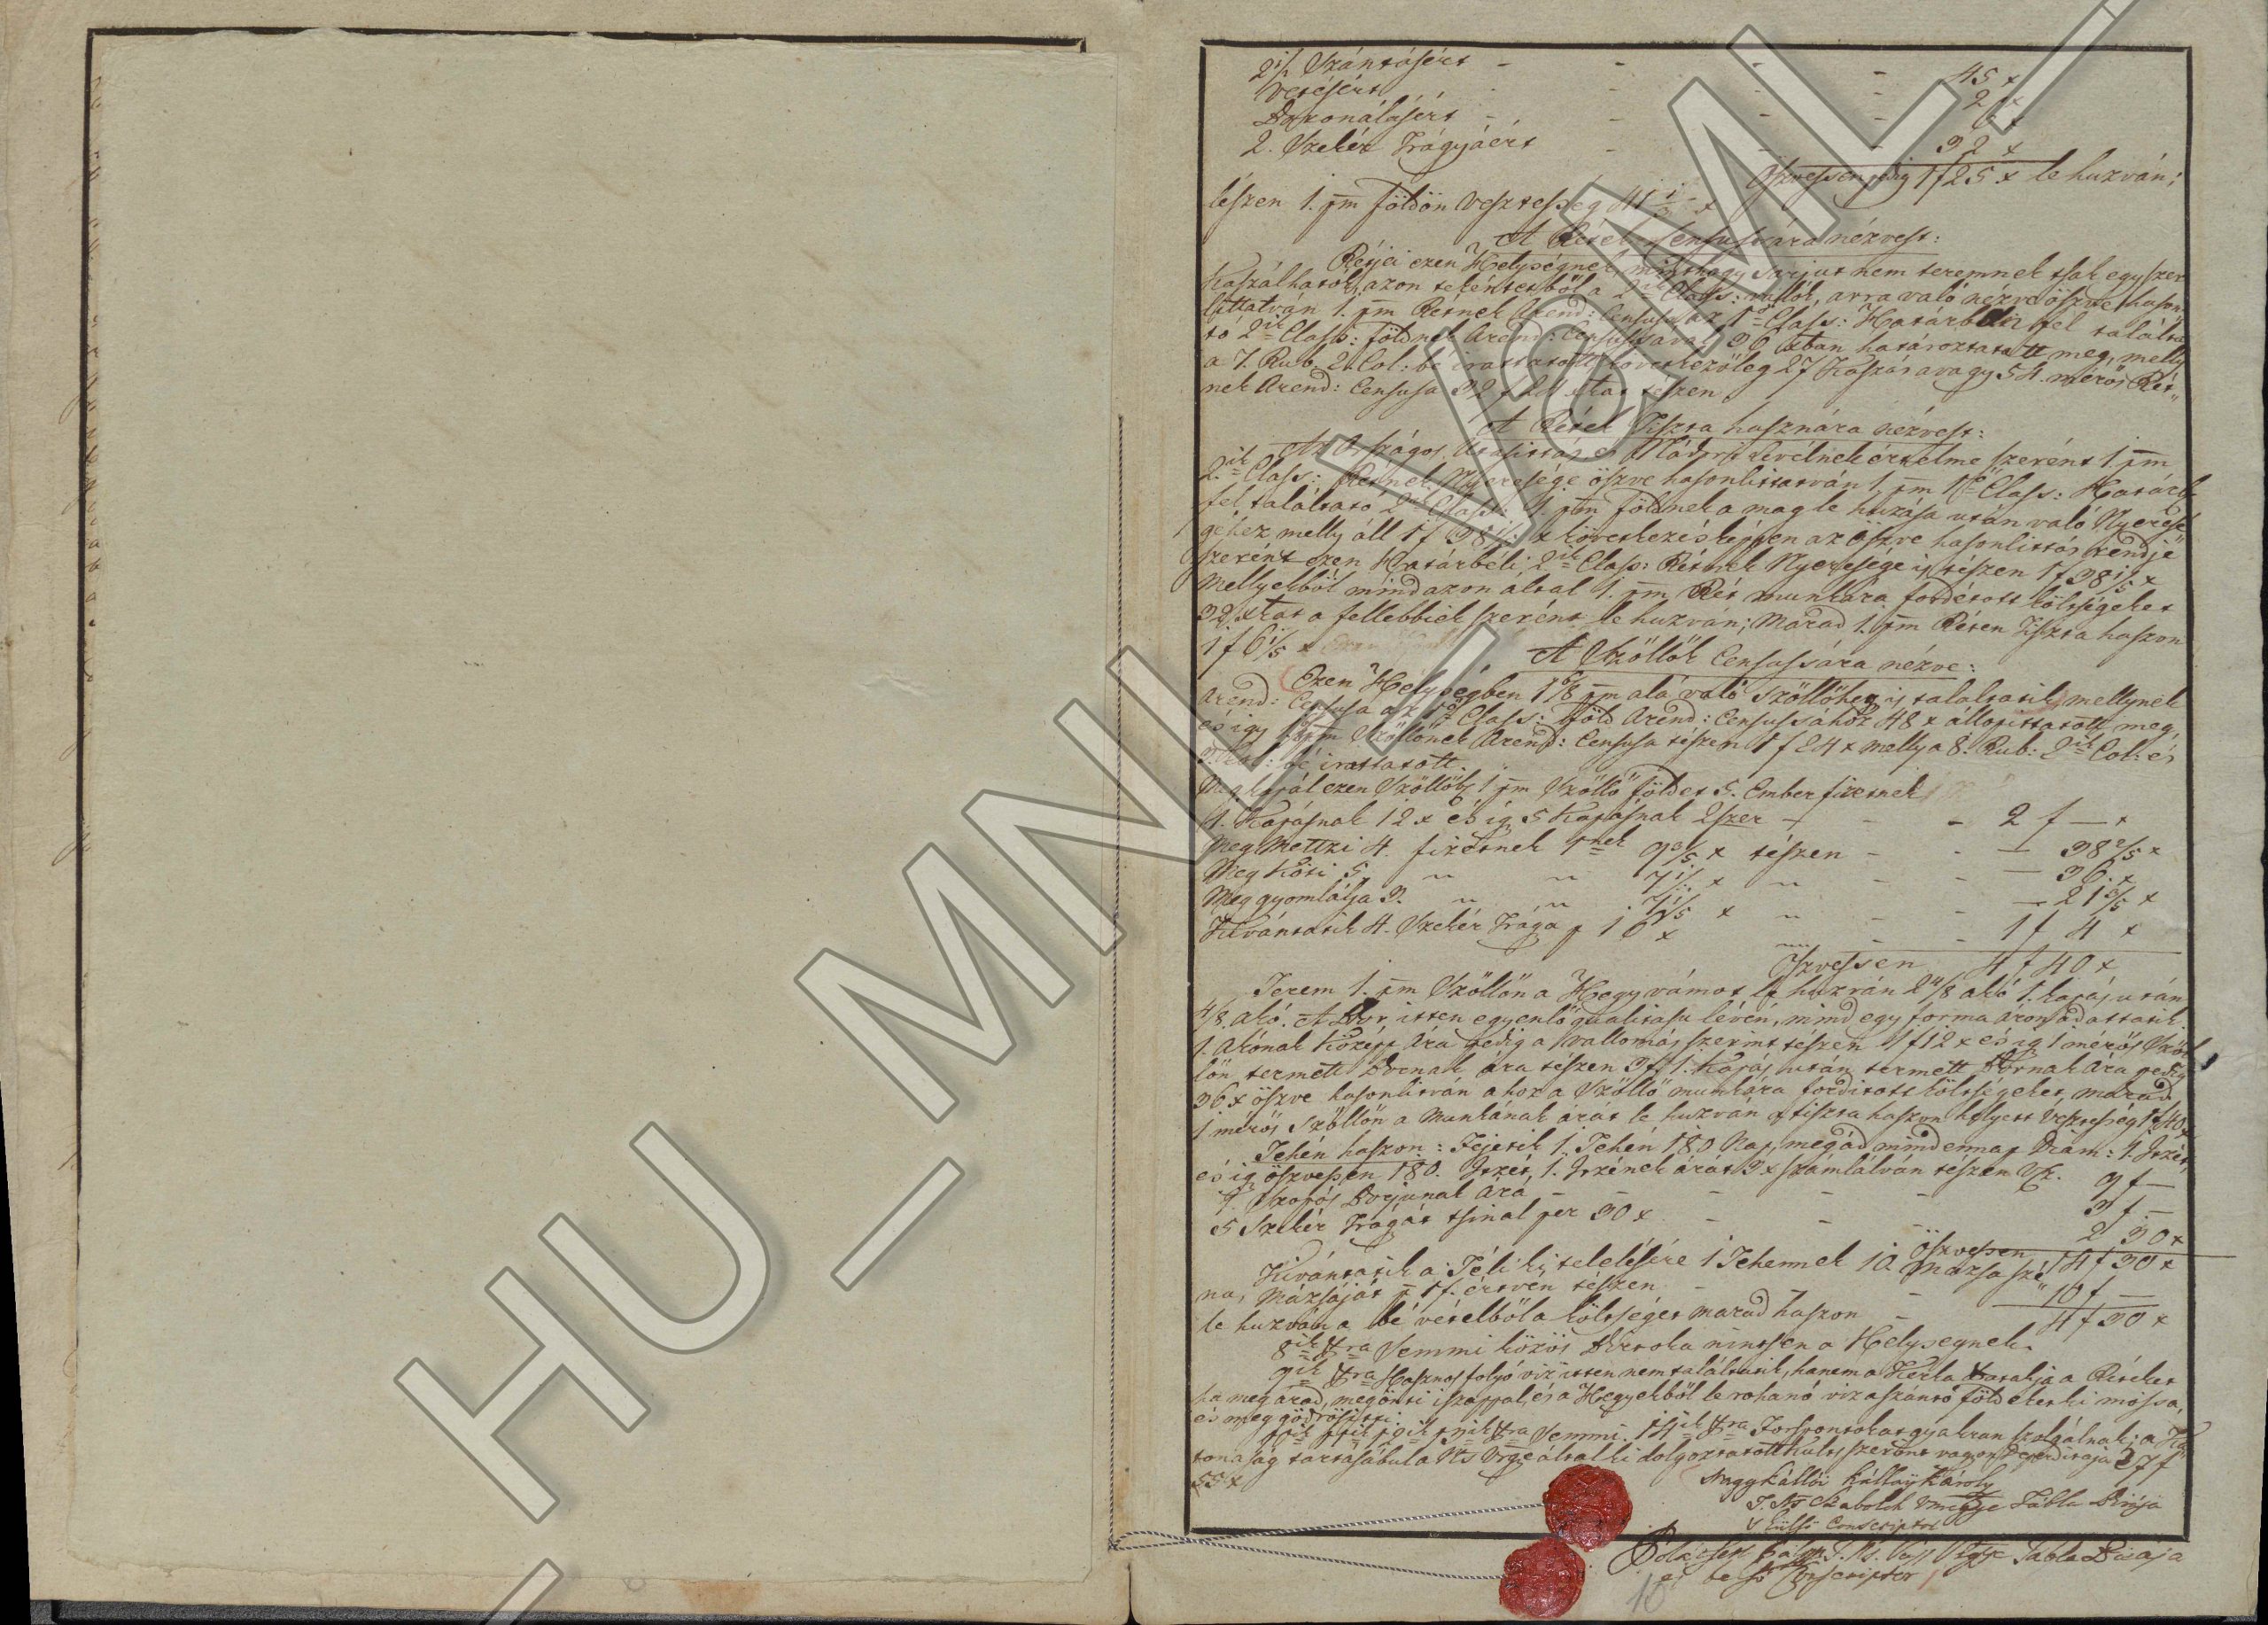 2 1/2 Szántásért - - - - 45 x
Vetésért - - - - 2 x
Boronálásért - - - - 6 x
2. Szekér Trágyáért - - - 32 x
Öszvessen pedig 1 f 25 x le huzván;
lészen 1. pm földön Vesztesség 41
A Rétek Censussára nézvest:
Rétjei ezen Helységnek, minthogy Sarjut nem teremnek tsak egyszer
Kaszálhatók, azon tekéntetből a 2ik Class: valók, arra való nézve öszve hason
littatván 1. pm Rétnek Arend: Censusa az 1ső Class: Határban fel találta
tó 2ik Class: földnek Arend: Censussával 36 xban határoztatott meg, melly
a 7. Rub. 2. Col: bé irattatott következőleg 27 Kaszás avagy 54. mérős Rét
nek Arend: Censusa 32 f 24 xkat tészen
A Rétek Tiszta hasznára nézvest:
Az Országos Utasittás és Nádori Levélnek értelme szerént 1 pm
2ik Class: Rétnek Nyeresége öszve hasonlittatván 1 pm 1ső Class: Határb
fel találtató 2ik Class: 1. pm földnek a mag le huzása után való Nyeresé
géhez melly áll 1 f 38 1/5 x következésképpen az öszve hasonlittás rendje
szerént ezen Határbéli 2ik Class: Rétnek Nyeresége is tészen 1 f 38 1/5 x
Mellyekből mindazon által 1. pm Rét munkára fordétott költségeket
32 xkat a fellebbiek szerént le huzván; Marad 1. pm Réten Tiszta haszon
1 f 6 1/5 x
A Szőllők Censussára nézve:
Ezen Helységben 1 6/8 pm alá való Szőllőhegy is találtatik, mellynek
Arend: Censusa az 1ső Class: föld Arend: Censussához 48 x állapittatott meg,
és igy pm Szőllőnek Arend: Censusa tészen 1 f 24 x melly a 8. Rub: 2ik Col: és
3. Col: bé irattatott.
Meg kapál ezen Szőllőb 1 pm Szőllő földet 5. Ember fizetnek
1. Kapásnak 12 x és ig 5 Kapásnak 2szer - - - 2 f — x
Meg Mettzi 4. fizetnek 1nek 9 3/5 x tészen - - — 38 2/5 x
Meg Köti 5. " " 7 1/5 x " - - — 36 x
Meg gyomlálja 3. " " 7 1/5 x " - - — 21 3/5 x
Kivántatik 4. Szekér Trága p 16 x " - - 1 f 4 x
Öszvessen 4 f 40 x
Terem 1. pm Szőllőn a Hegy vámot le huzván 2 4/8 akó 1. kapás után
4/8 akó. A Bor itten egyenlő qualitásu lévén, mind egy forma áron adattatik.
1. Akónak Közép Ára pedig a vallomás szerint tészen 1 f 12 x és ig 1 mérős Szől
lőn termett Bornak ára tészen 3 f 1. Kapás után termett Bornak Ára pedig
36 x öszve hasonlitván ahoz a Szőllő munkára forditott költségeket, marad
1 mérős Szőllőn a Munkának árát le huzván a tiszta haszon helyett Vesztesség 1 f 40 x
Tehén haszon: Fejetik 1. Tehén 180 Nap, megád mindennap Diám: 1. Itzét,
és ig öszvessen 180. Itzét, 1. Itzének árát 3 x számlálván tészen Vfr. 9 f —
1. Szopós Borjunak Ára - - - - 3 f —
5 Szekér Trágát tsinál per 30 x - - - 2 30 x
öszvessen 14 f 30 x
Kivántatik a Téli ki telelésire 1 Tehennek 10 Mázsa szé
na, Mázsáját p 1 f. értvén tészen - - 10 f —
le huzván a bé vételből a költséget marad haszon - 4 f 30 x
8ik Ptra Semmi közös Birtoka nintsen a Helységnek.
9ik Ptra Hasznos folyó viz itten nem találtatik, hanem a Kerka patakja a Réteket
ha meg árad, megönti iszappal, és a Hegyekből le rohanó viz a szántó földeket ki mossa,
és meg gödrösitti.
10ik 11ik 12ik 13ik Ptra Semmi. 14ik Ptra Forspontokat gyakran szolgálnak; a Ka
tonaság tartásábul a Ns Vrgye által ki dolgoztatott Kults szerént vagyon Deperditája 27 f
53 x
Nagy Kállói Kállay Károly
T. Ns Szabolch Vmegye Tábla Birája
s külső Conscriptor
T. Ns. Vas Vgye Tábla Birája
és belső Conscriptor
10
HU_MNL_VSML_